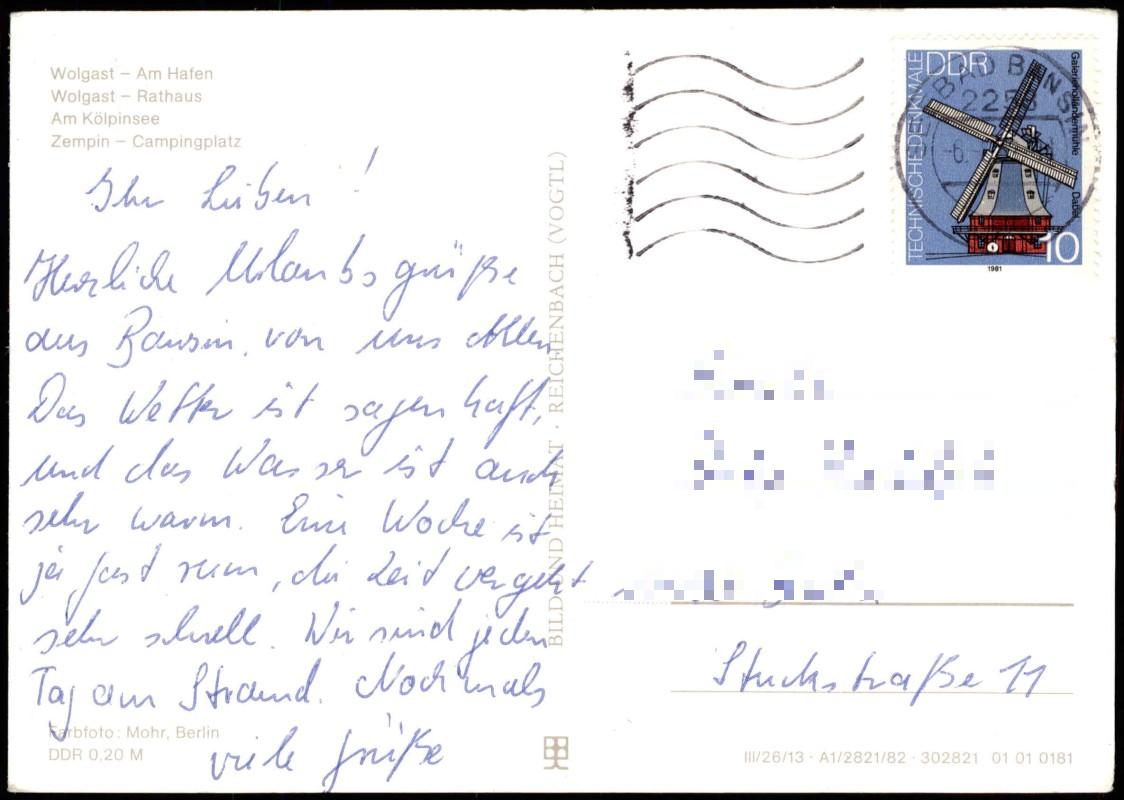 Wolgast – Am Hafen
Wolgast – Rathaus
Am Kölpinsee
Zempin – Campingplatz
Ihr Lieben!
Herzliche Urlaubsgrüße
aus Bansin, von uns Allen
Das Wetter ist sagenhaft,
und das Wasser ist auch
sehr warm. Eine Woche ist
ja fast rum, die Zeit vergeht
sehr schnell. Wir sind jeden
Tag am Strand. Nochmals
viele Grüße
Farbfoto: Mohr, Berlin
DDR 0,20 M
BILD UND HEIMAT · REICHENBACH (VOGTL)
DDR
TECHNISCHE DENKMALE
Galerieholländermühle Dabel
10
1981
BAD BANSIN
225
-6.
Stuckstraße 11
III/26/13 · A1/2821/82 · 302821 01 01 0181